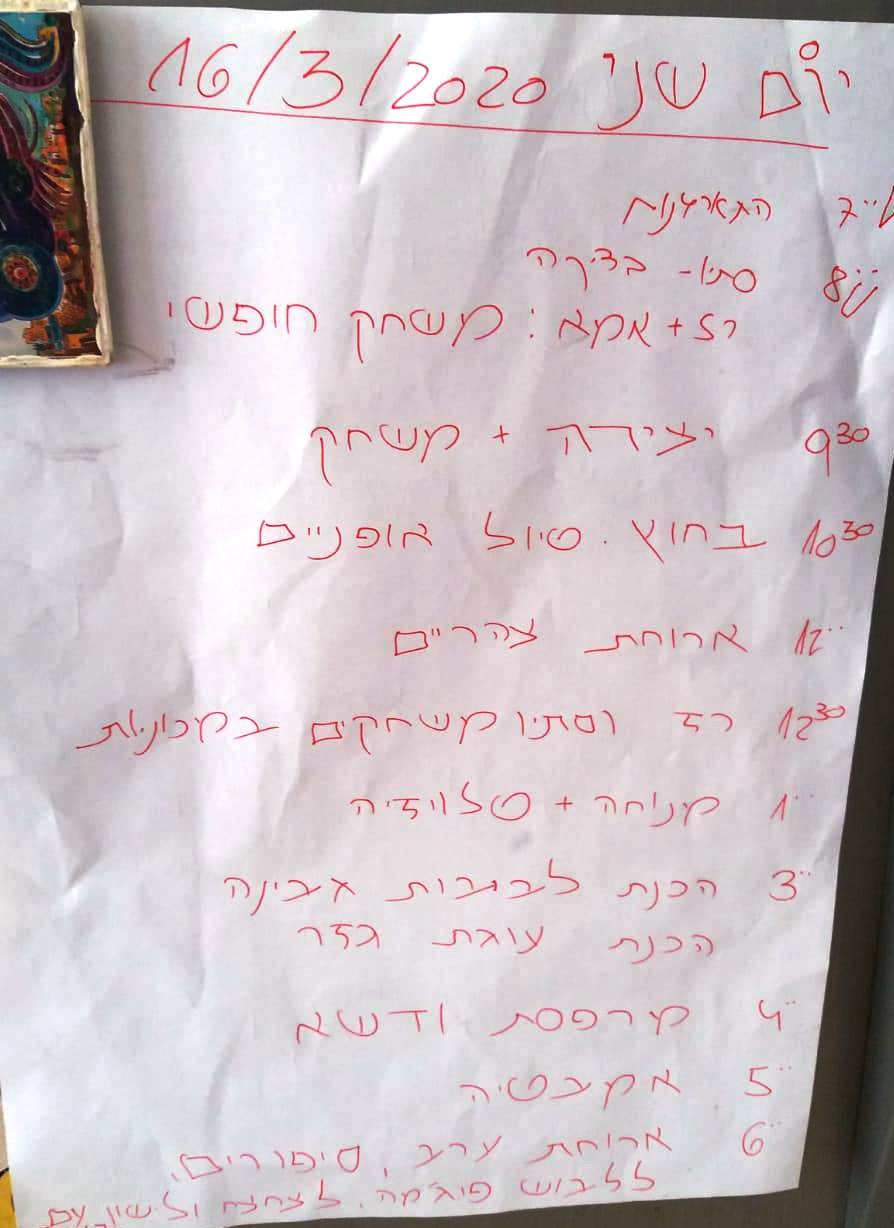 יום שני 16/3/2020
7 התארגנות
8 סתיו - בדיקה
רז + אמא: משחק חופשי
9 30 יצירה + משחק
10 30 בחוץ. טיול אופניים
12 ארוחת צהריים
12 30 רז וסתיו משחקים במכוניות
1 מנוחה + טלויזיה
3 הכנת לבבות גבינה
הכנת עוגת גזר
4 מרפסת ודשא
5 אמבטיה
6 ארוחת ערב, סיפורים,
ללבוש פיג'מה, לצחצח ולישון עם